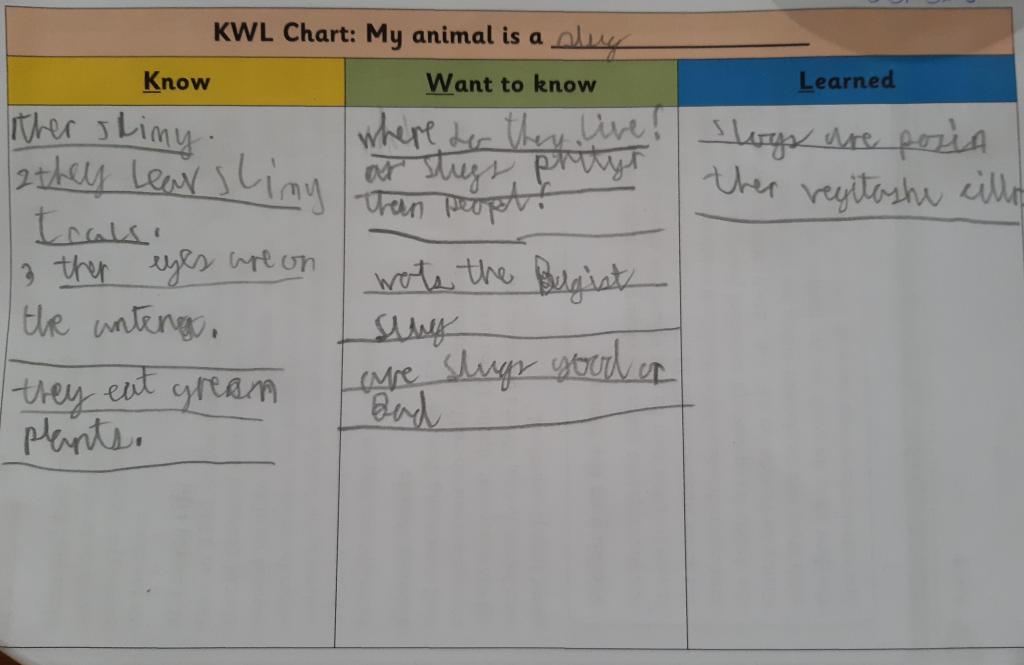 KWL Chart: My animal is a slug
Know
1ther slimy.
2they leav slimy
trals.
3 ther eyes are on
the antena.
they eat green
plants.
Want to know
where do they live?
ar slugs prityr
then peopel?
wots the Bigist
slug
are slugs good or
Bad
Learned
slugs are poisin
ther vegitashn cillr